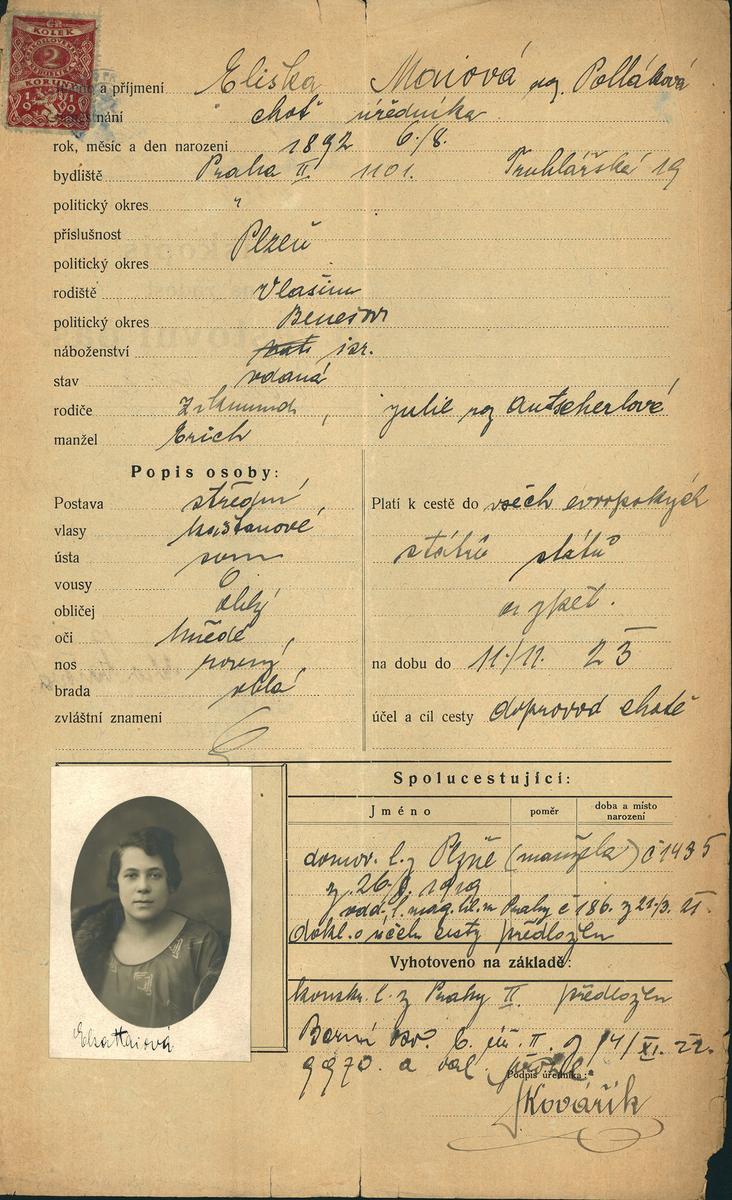 KOLEK
2
KORUNY
1919
a příjmení Eliska Maiová roz. Polláková
choť úředníka
rok, měsíc a den narození 1892 6./8.
bydliště Praha II 1101. Truhlářská 19
politický okres "
příslušnost Plzeň
politický okres
rodiště Vlašim
politický okres Benešov
náboženství isr.
stav vdaná
rodiče Zikmund, Julie roz Autscherlové
manžel Erich
Popis osoby:
Postava střední
vlasy kaštanové
ústa soum
vousy
obličej oblý
oči hnědé
nos rovný
brada oblá
zvláštní znamení
Platí k cestě do všech evropských
států států
a zpět.
na dobu do 11./11. 23
účel a cíl cesty doprovod chotě
Spolucestující:
Jméno poměr doba a místo narození
domov. l. z Plzně (manžela) č 1435
z 26/ 1919
vdd. l. mag. hl. m Prahy č 186. z 21/3. 21.
dokl. o účelu cesty předložen
Vyhotoveno na základě:
konskr. l. z Prahy II. předložen
Berní 14/XI. 22.
9970. a val.
Podpis úředníka:
Kovářík
Elsa Maiová